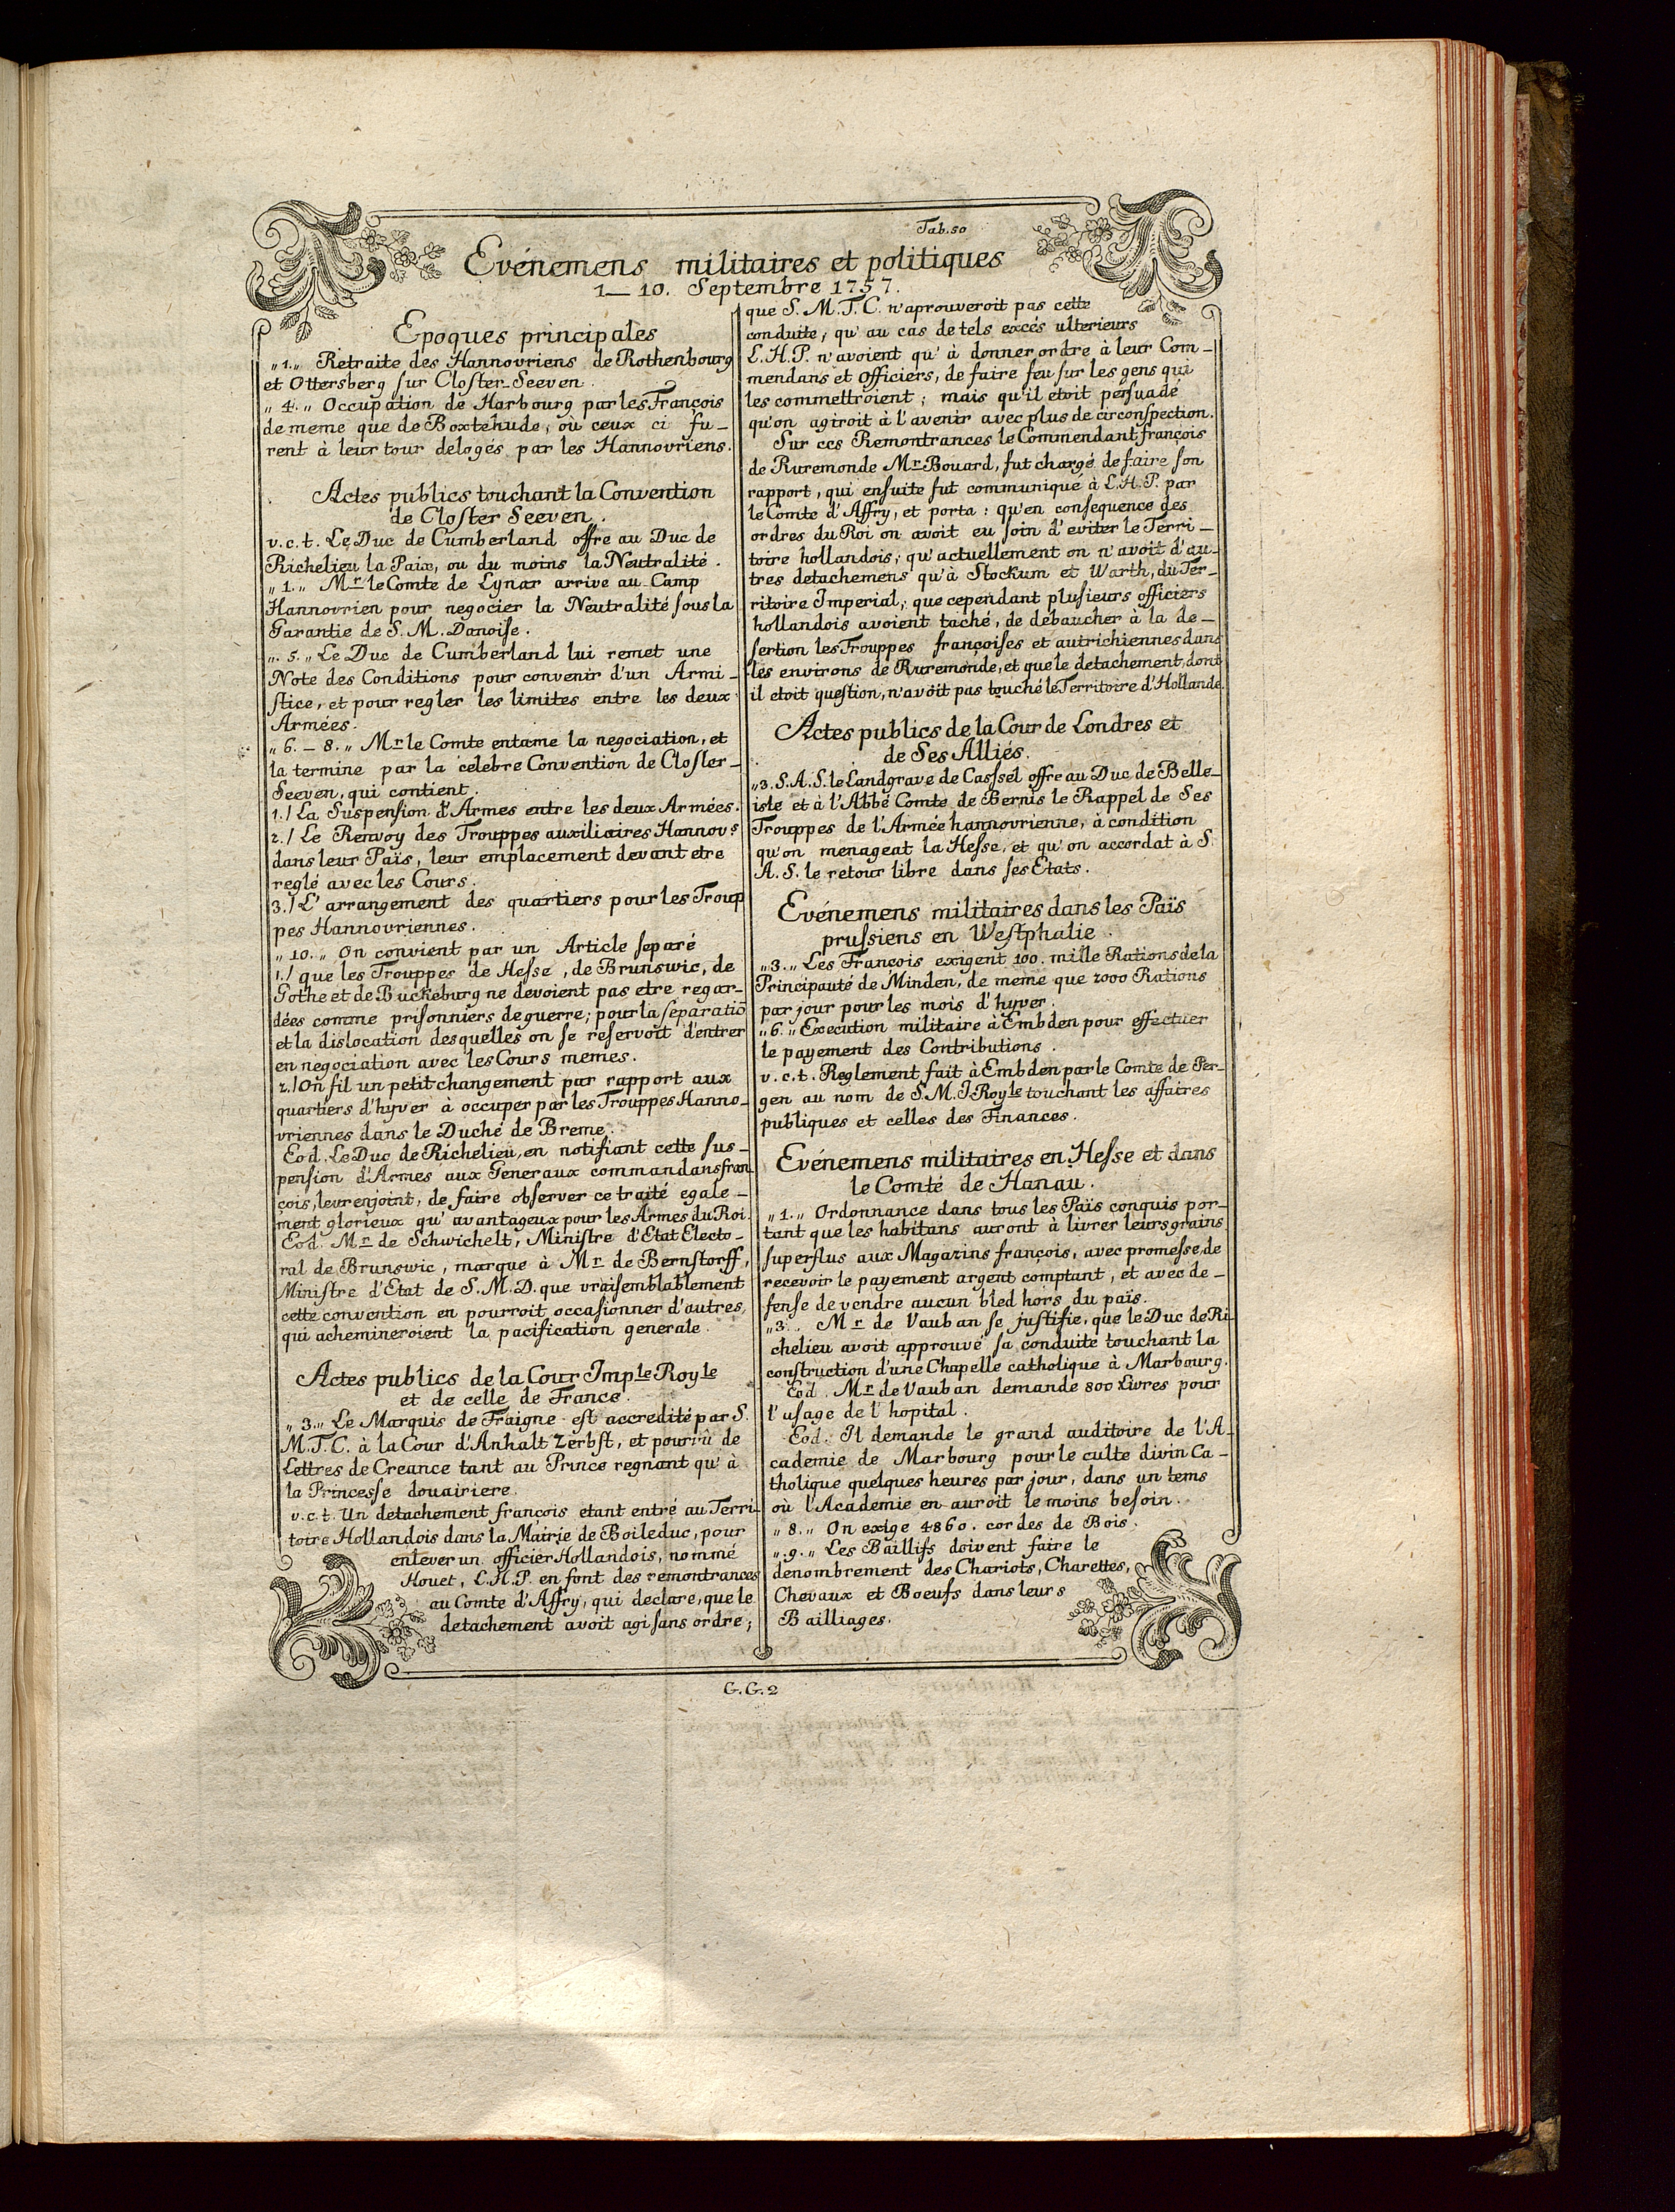 Tab. 50
Evénemens militaires et politiques
1_ 10. Septembre 1757.
Epoques principales
„1.„ Retraite des Hannovriens de Rothenbourg
et Ottersberg ſur Cloſter-Seeven.
„4.„ Occupation de Harbourg par les François
de meme que de Boxtehude, où ceux ci fu_
rent à leur tour delogés par les Hannovriens.
Actes publics touchant la Convention
de Cloſter Seeven.
v.c.t. Le Duc de Cumberland offre au Duc de
Richelieu la Paix, ou du moins la Neutralité.
„1.„ Mr le Comte de Lynar arrive au Camp
Hannovrien pour negocier la Neutralité ſous la
Garantie de S. M. Danoiſe.
„5.„ Le Duc de Cumberland lui remet une
Note des Conditions pour convenir d'un Armi_
ſtice, et pour regler les limites entre les deux
Armées.
„6._8.„ Mr le Comte entame la negociation, et
la termine par la celebre Convention de Cloſter_
Seeven, qui contient.
1./ La Suspenſion d'Armes entre les deux Armées.
2./ Le Renvoy des Trouppes auxiliaires Hannovs
dans leur Païs, leur emplacement devant etre
reglé avec les Cours.
3./ L'arrangement des quartiers pour les Troup
pes Hannovriennes.
„10.„ On convient par un Article ſeparé
1./ que les Trouppes de Heſse, de Brunswic, de
Gothe et de Buckeburg ne devoient pas etre regar_
dées comme priſonniers de guerre; pour la ſeparatiõ
et la dislocation desquelles on ſe reſervoit d'entrer
en negociation avec les Cours memes.
2./ On fit un petit changement par rapport aux
quartiers d'hyver à occuper par les Trouppes Hanno_
vriennes dans le Duché de Breme.
Eod. Le Duc de Richelieu, en notifiant cette ſus_
penſion d'Armes aux Generaux commandans fran_
çois, leur enjoint, de faire obſerver ce traité egale_
ment glorieux qu'avantageux pour les Armes du Roi.
Eod. Mr de Schwichelt, Miniſtre d'Etat Electo_
ral de Brunswic, marque à Mr de Bernſtorff,
Miniſtre d'Etat de S. M. D. que vraiſemblablement
cette convention en pourroit occaſionner d'autres,
qui achemineroient la pacification generale.
Actes publics de la Cour Imple Royle
et de celle de France.
„3.„ Le Marquis de Fraigne eſt accredité par S.
M. T. C. à la Cour d'Anhalt Zerbſt, et pourvû de
Lettres de Creance tant au Prince regnant qu'à
la Princeſse douairiere.
v.c.t. Un detachement françois etant entré au Terri_
toire Hollandois dans la Mairie de Boileduc, pour
enlever un officier Hollandois, nommé
Houet, L.H.P. en font des remontrances
au Comte d'Affry, qui declare, que le
detachement avoit agi ſans ordre;
que S. M. T. C. n'aprouveroit pas cette
conduite, qu'au cas de tels excés ulterieurs
L. H. P. n'avoient qu'à donner ordre à leur Com_
mendans et Officiers, de faire feu ſur les gens qui
les commettroient; mais qu'il etoit perſuadé
qu'on agiroit à l'avenir avec plus de circonſpection.
Sur ces Remontrances le Commendant françois
de Ruremonde Mr Bouard, fut chargé de faire ſon
rapport, qui enſuite fut communiqué à L. H. P. par
le Comte d'Affry, et porta: qu'en conſequence des
ordres du Roi on avoit eu ſoin d'eviter le Terri_
toire hollandois; qu'actuellement on n'avoit d'au_
tres detachemens qu'à Stockum et Warth, du Ter_
ritoire Imperial; que cependant pluſieurs officiers
hollandois avoient taché, de debaucher à la de_
ſertion les Trouppes françoiſes et autrichiennes dans
les environs de Ruremonde, et que le detachement, dont
il etoit queſtion, n'avoit pas touché le Territoire d'Hollande.
Actes publics de la Cour de Londres et
de Ses Alliés.
„3. S. A. S. le Landgrave de Casſsel offre au Duc de Belle_
isle et à l'Abbé Comte de Bernis le Rappel de Ses
Trouppes de l'Armée hannovrienne, à condition
qu'on menageat la Heſse, et qu'on accordat à S.
A. S. le retour libre dans ſes Etats.
Evénemens militaires dans les Païs
pruſsiens en Weſtphalie.
„3.„ Les Francois exigent 100. mille Rations de la
Principauté de Minden, de meme que 2000 Rations
par jour pour les mois d'hyver.
„6.„ Execution militaire à Embden pour effectuer
le payement des Contributions.
v.c.t. Reglement fait à Embden par le Comte de Per_
gen au nom de S. M. J. Royle touchant les affaires
publiques et celles des Finances.
Evénemens militaires en Heſse et dans
le Comté de Hanau.
„1.„ Ordonnance dans tous les Païs conquis por_
tant que les habitans auront à livrer leurs grains
ſuperflus aux Magazins françois, avec promeſse, de
recevoir le payement argent comptant, et avec de_
fenſe de vendre aucun bled hors du païs.
„3.„ Mr de Vauban ſe juſtifie, que le Duc de Ri_
chelieu avoit approuvé ſa conduite touchant la
conſtruction d'une Chapelle catholique à Marbourg.
Eod. Mr de Vauban demande 800 Livres pour
l'uſage de l'hopital.
Eod. Il demande le grand auditoire de l'A_
cademie de Marbourg pour le culte divin Ca_
tholique quelques heures par jour, dans un tems
où l'Academie en auroit le moins beſoin.
„8.„ On exige 4860. cordes de Bois.
„9.„ Les Baillifs doivent faire le
denombrement des Chariots, Charettes,
Chevaux et Boeufs dans leurs
Bailliages.
G.G.2